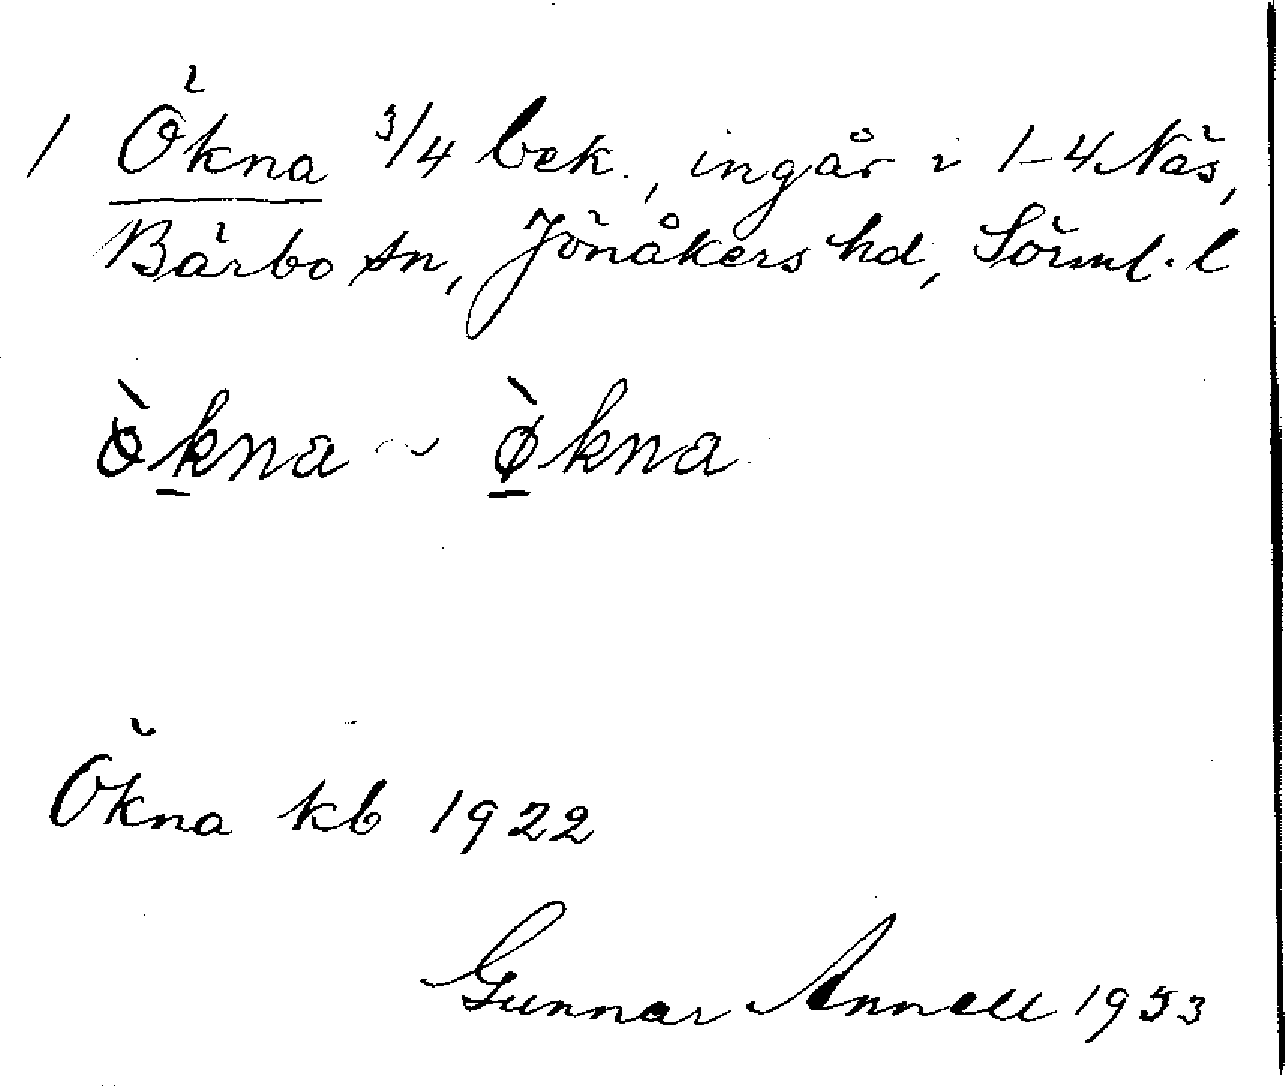 1 Ökna 3/4 bek., ingår i 1-4 Näs,
Bärbo sn, Jönåkers hd, Sörml. l
ö̀kna ~ ø̀kna
Ökna kb 1922
Gunnar Annell 1953